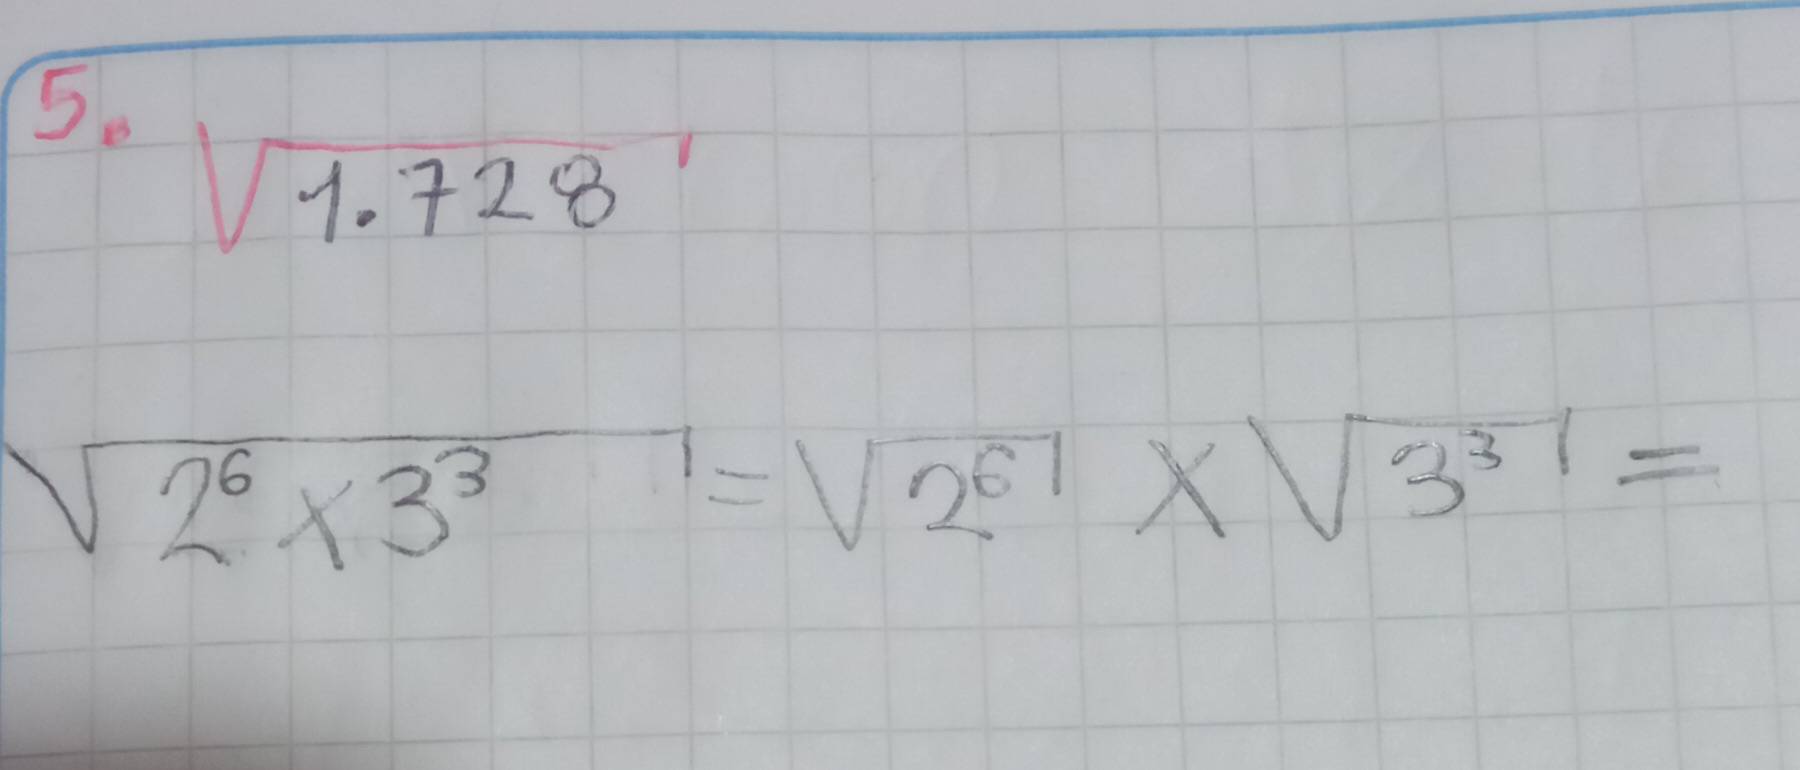 5. √1.728
√2⁶ x 3³ = √2⁶ x √3³ =